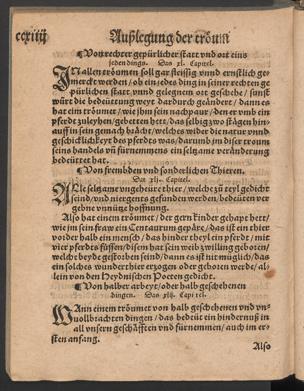 ccxiiij
Außlegung der tröum
¶ Von rechter gepürlicher statt vnd ort eins
jeden dings. Das xl. Capitel.
IN allen tröumen soll gar fleissig vnnd ernstlich ge-
mercket werden / ob ein jedes ding in seiner rechten ge
pürlichen statt vnnd gelegnem ort geschehe / sunst
würt die bedeüttung weyt dardurch geändert / dann es
hat ein tröumet / wie jhm sein nachpaur / den er vmb ein
pferde zuleyhen / gebetten hett, das selbig zwo stägen hin-
auff in sein gemach bracht / welches wider die natur vnnd
geschicklicheyt des pferds was / darumb jm diser traum
seins handels vn fürnemmens ein seltzame veränderung
bedeüttet hat.
¶ Von frembden vnd sonderlichen Thieren.
Das xlj. Capitel.
ALle seltzame vngeheüre thier / welche zů teyl gedicht
seind / vnd niergents gefunden werden / bedeüten ver
gebne vnnütze hoffnung.
Also hat einem tröumet / der gern kinder gehapt hett /
wie jm sein fraw ein Centaurum gepäre / das ist ein thier
vorder halb ein mensch / das hinder theyl ein pferde / mit
vier pferds füssen / disem hat sein weib zwilling geboren /
welche beyde gestorben seind / dann es ist nit müglich / das
ein solches wunderthier erzogen oder geboren werde / al-
lein von den Heydnischen Poeten gedicht.
¶ Von halber arbeyt / oder halb geschehenen
dingen. Das xlij. Capitel.
WAnn einem tröumet von halb geschehenen vnd vn-
uollbrachten dingen / das bedeüt ein hindernuß in
all vnsern geschäfften vnd fürnemmen / auch im er-
sten anfang.
Also